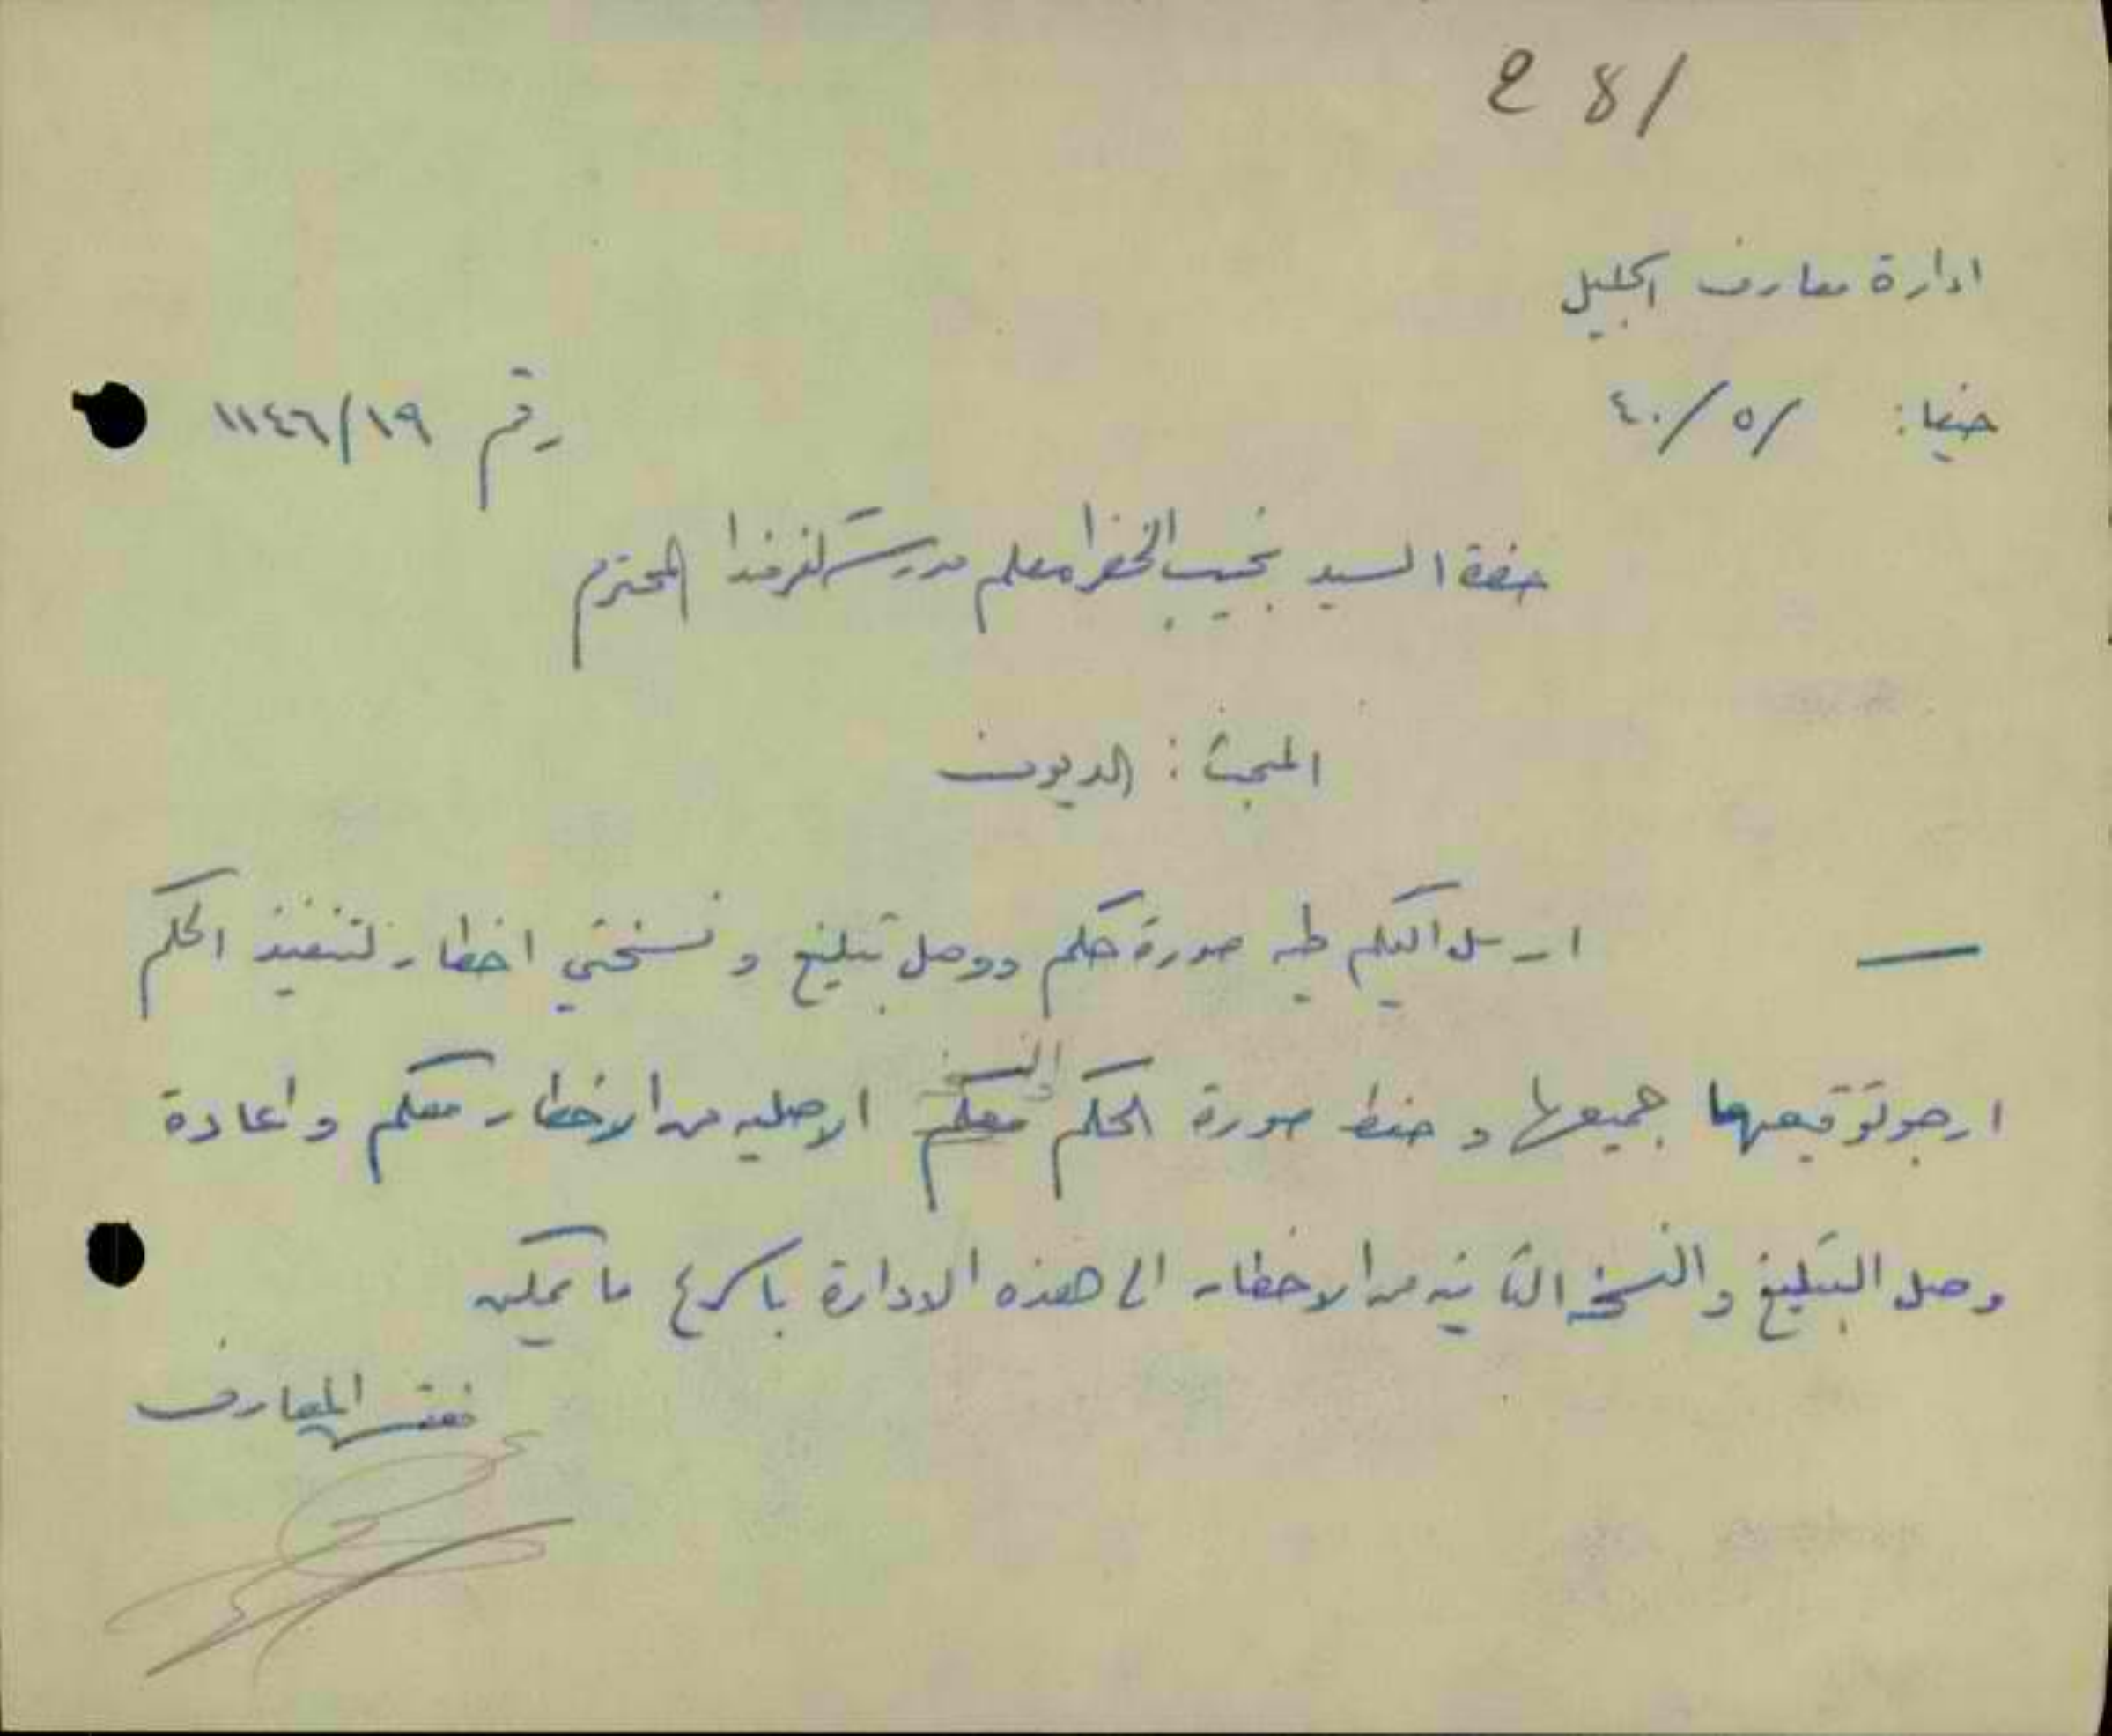 281
ادارة معارف الجليل
حيفا: /٥/٤٠
رقم ١١٤٦/١٩
حضرة السيد نجيب الخضرا معلم مدرسة المحترم
المبحث : الديون
ارسل اليكم طيه صورة حكم ووصل تبليغ ونسختي اخطار لتنفيذ الحكم
ارجو توقيعها جميعها وحفظ صورة الحكم والنسخة الاصليه من الاخطار معكم واعادة
وصل التبليغ والنسخه الثانيه من الاخطار الى هذه الادارة باسرع ما يمكن
مفتش المعارف